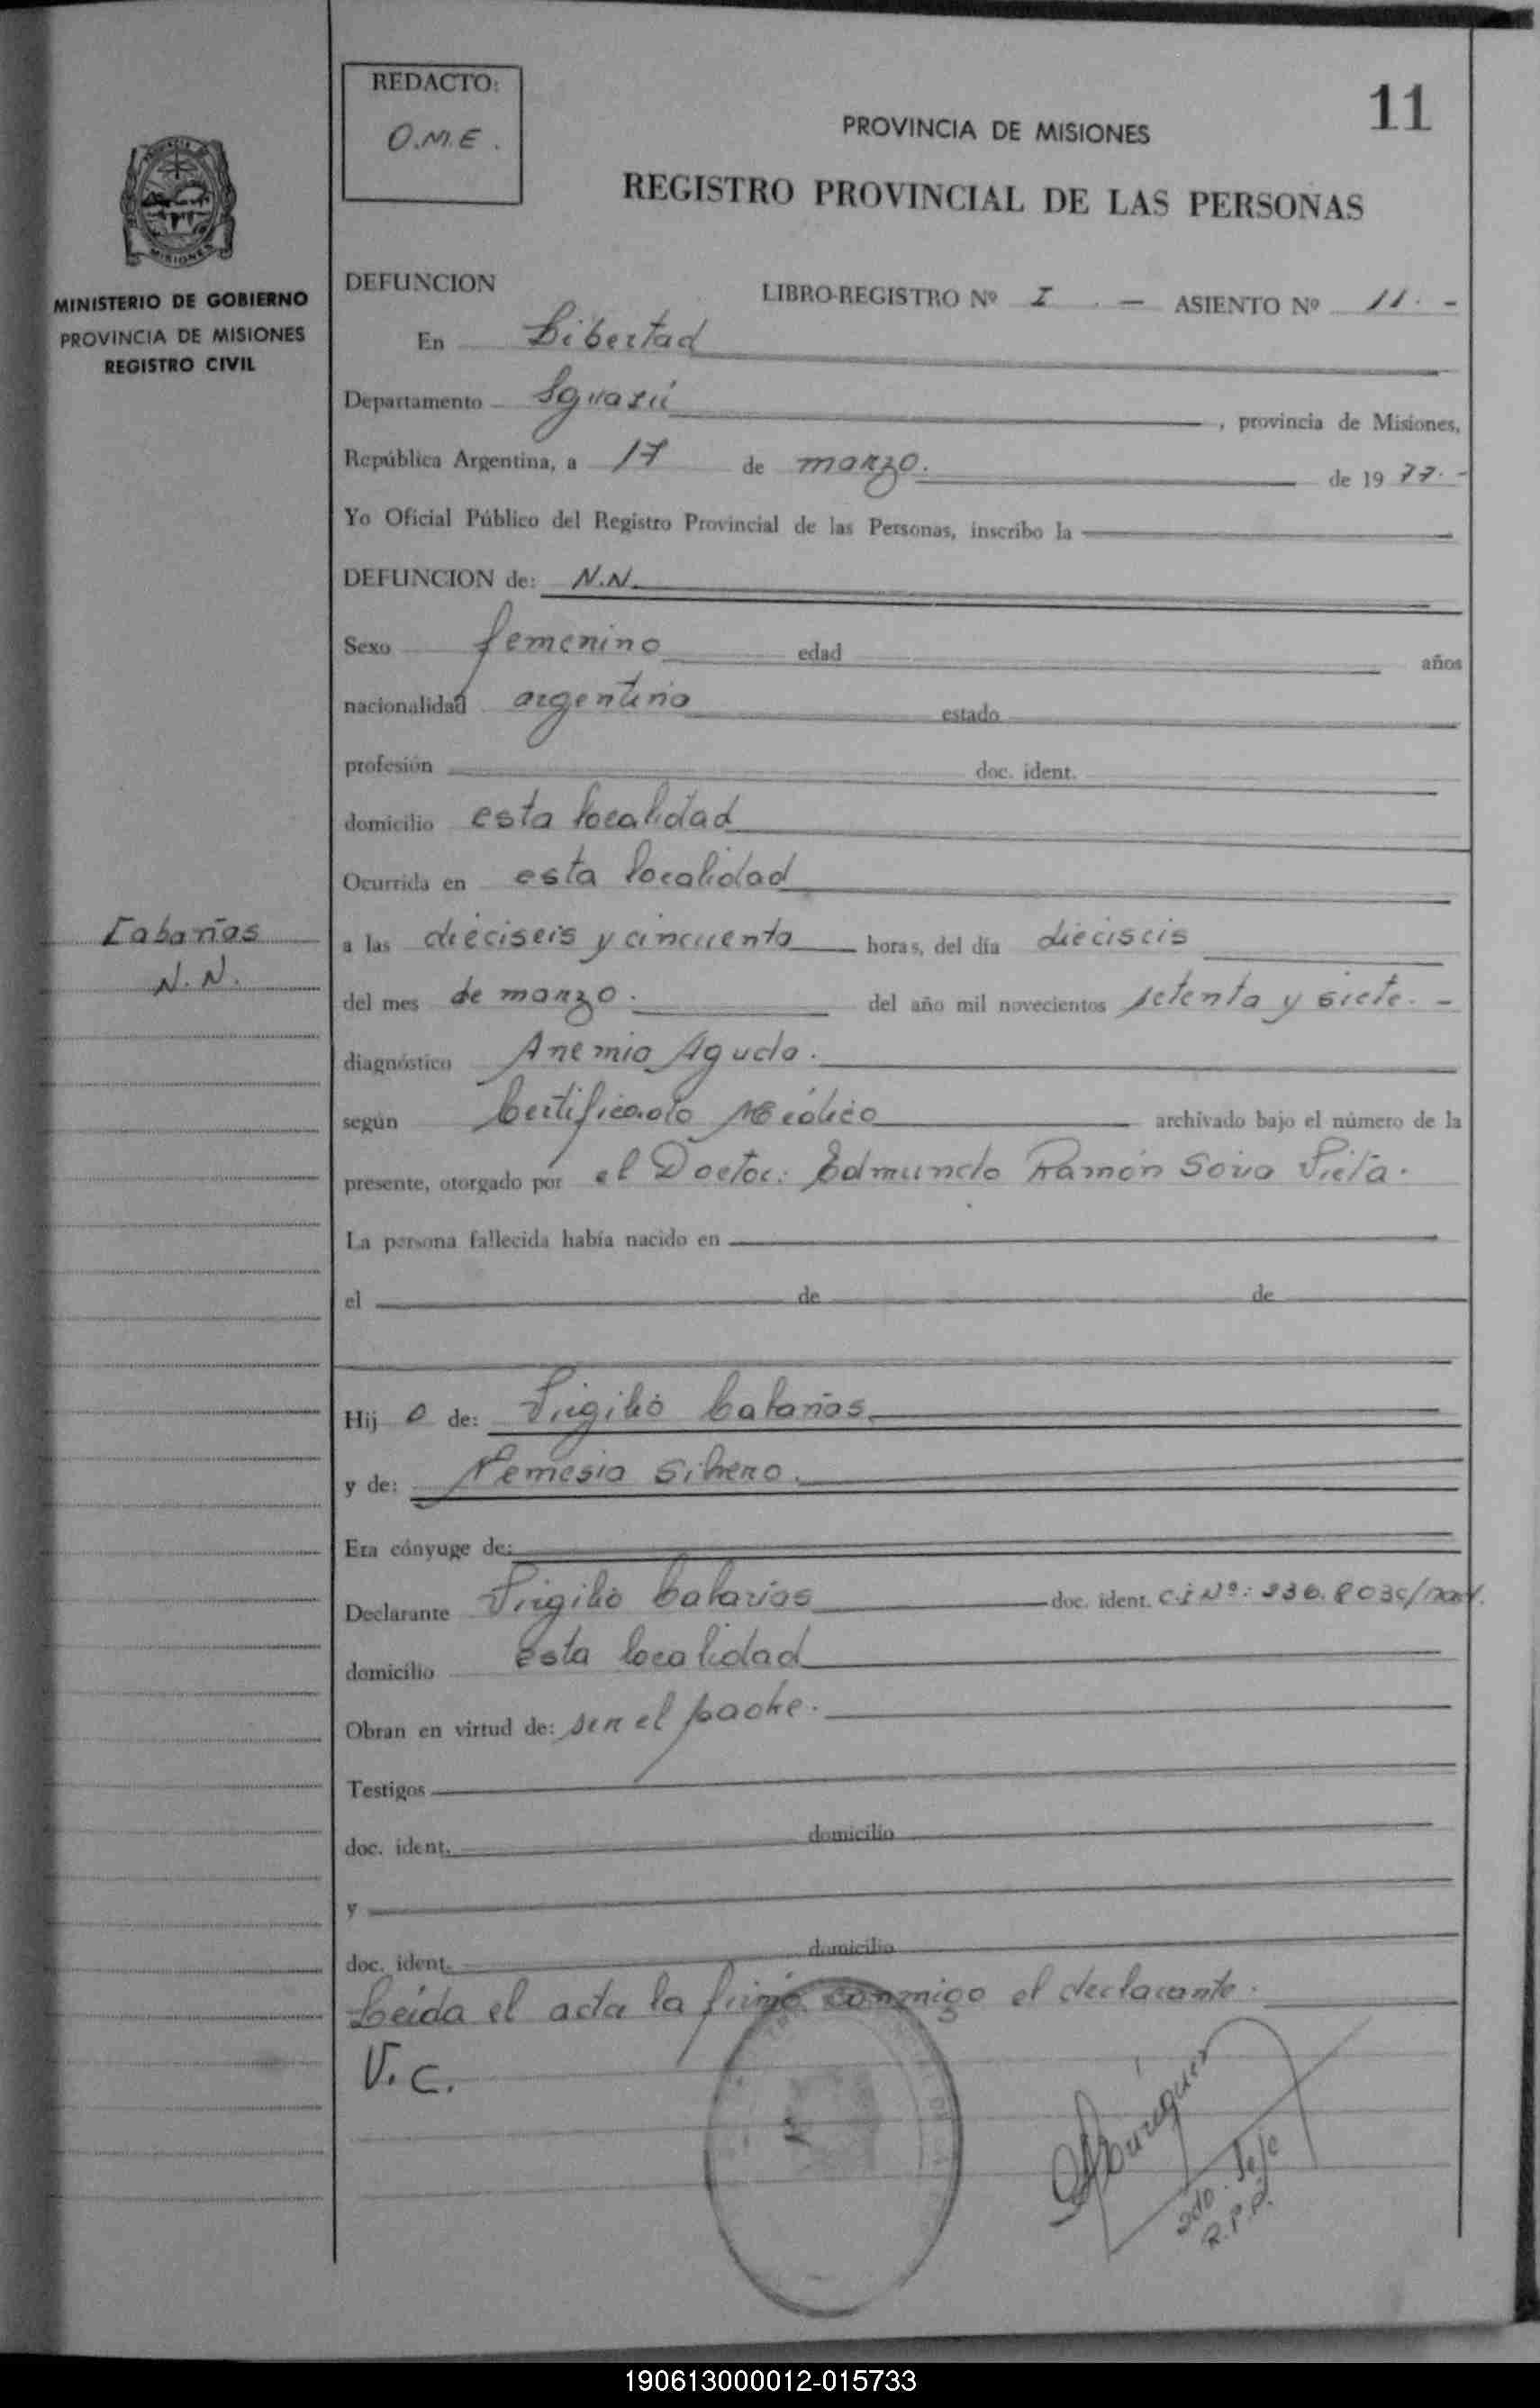 REDACTO:
O.M.E.
11
PROVINCIA DE MISIONES
REGISTRO PROVINCIAL DE LAS PERSONAS
MINISTERIO DE GOBIERNO
PROVINCIA DE MISIONES
REGISTRO CIVIL
DEFUNCION LIBRO-REGISTRO Nº I . — ASIENTO Nº 11. -
En Libertad
Departamento Iguazú , provincia de Misiones,
República Argentina, a 17 de marzo. de 19 77. -
Yo Oficial Público del Registro Provincial de las Personas, inscribo la
DEFUNCION de: N.N.
Sexo femenino edad años
nacionalidad argentina estado
profesión doc. ident.
domicilio esta localidad
Ocurrida en esta localidad
Cabañas
N.N.
a las dieciseis y cincuenta horas, del día dieciseis
del mes de marzo. del año mil novecientos setenta y siete. -
diagnóstico Anemia Aguda.
según Certificado Médico archivado bajo el número de la
presente, otorgado por el Doctor: Edmundo Ramón
La persona fallecida había nacido en
el de de
Hij o de: Virgilio Cabañas
y de: Nemesia
Era cónyuge de:
Declarante Virgilio Cabañas doc. ident. C.I Nº:
domicilio esta localidad
Obran en virtud de: ser el padre.
Testigos
doc. ident. domicilio
y
doc. ident. domicilio
Leída el acta la firma conmigo el declarante.
V.C.
Jefe
R.P.P.
190613000012-015733